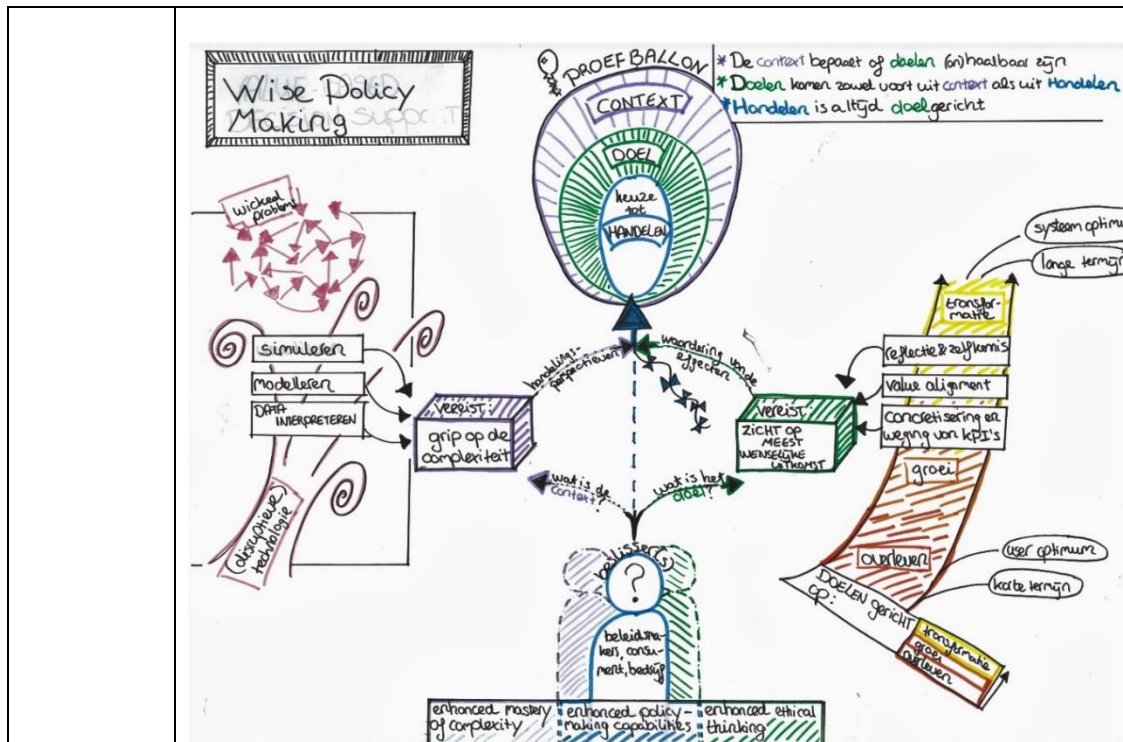 Wise Policy
Making
PROEFBALLON
CONTEXT
DOEL
keuze
tot
HANDELEN
* De context bepaalt of doelen (on)haalbaar zijn
* Doelen komen zowel voort uit context als uit Handelen
* Handelen is altijd doelgericht
wicked
problems
simuleren
modelleren
DATA
INTERPRETEREN
(disruptieve)
technologie
VEREIST:
grip op de
complexiteit
handelings-
perspectieven
waardering van de
effecten
VEREIST:
ZICHT OP
MEEST
WENSELIJKE
UITKOMST
wat is de
context?
wat is het
doel?
systeem optimu
lange termijn
transfor-
matie
reflectie & zelfkennis
value alignment
concretisering en
weging van KPI's
groei
overleven
user optimum
korte termijn
DOELEN gericht
op:
transformatie
groei
overleven
beslisser(s)
?
beleidsma-
kers, consu-
ment, bedrijf
enhanced mastery
of complexity
enhanced policy-
making capabilities
enhanced ethical
thinking